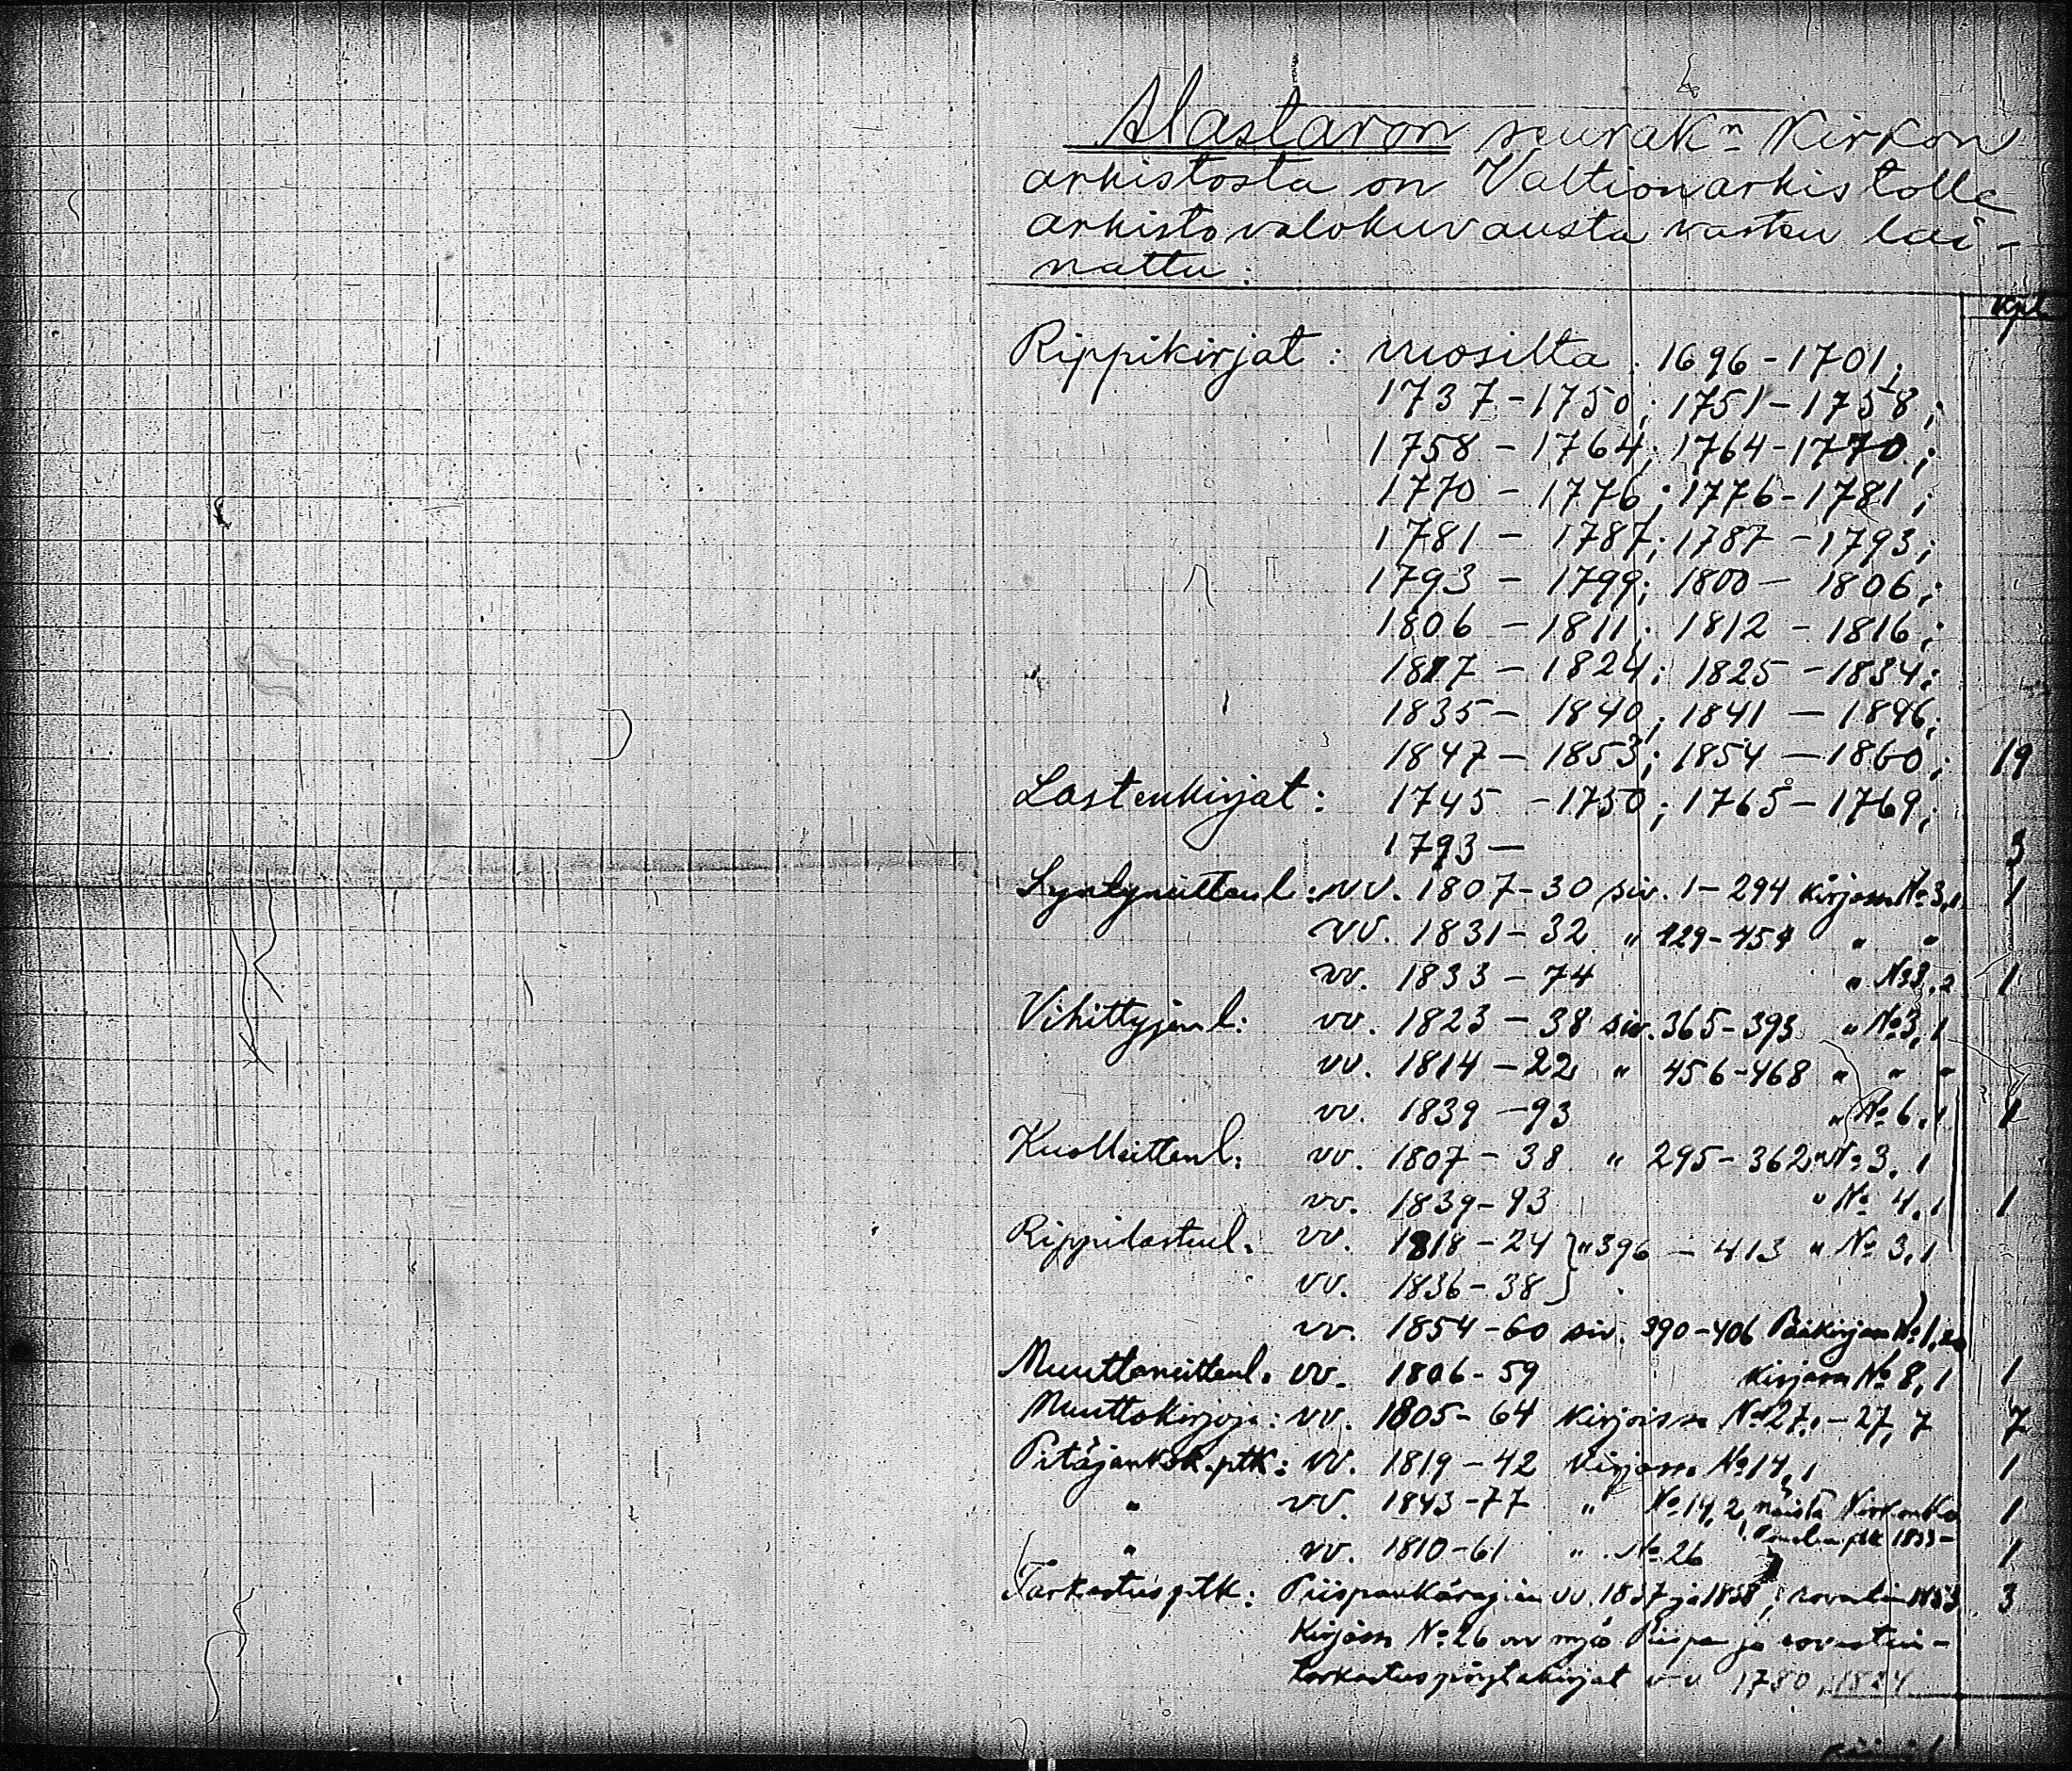 Alastaron seurakⁿ Kirkon
arkistosta on Valtionarkistolle
arkistovalokuvausta varten lai-
nattu:
kpl
Rippikirjat: vuosilta: 1696-1701;
1737-1750; 1751-1758;
1758-1764; 1764-1770;
1770-1776; 1776-1781;
1781-1787; 1787-1793;
1793-1799; 1800-1806;
1806-1811; 1812-1816;
1817-1824; 1825-1834;
1835-1840; 1841-1846;
1847-1853; 1854-1860; 19
Lastenkirjat: 1745-1750; 1765-1769;
1793- 3
Syntyneittenl: vv. 1807-30 siv. 1-294 kirjassa № 3,1 1
vv. 1831-32 " 429-454 " "
vv. 1833-74 " № 3,2 1
Vihittyjenl: vv. 1823-38 siv. 365-393 " № 3,1
vv. 1814-22 " 456-468 " " "
vv. 1839-93 " № 6,1 1
Kuolleittenl: vv. 1807-38 " 295-362 " № 3,1
vv. 1839-93 " № 4,1 1
Rippilastenl. vv. 1818-24 } " 396-413 " № 3,1
vv. 1836-38 }
vv. 1854-60 siv. 390-406 Pääkirjan № 1,20
Muuttaneittenl. vv. 1806-59 kirjassa № 8,1 1
Muuttokirjoja: vv. 1805-64 kirjoissa № 27,1-27,7 7
Pitäjänkok.ptk: vv. 1819-42 kirjassa № 14,1 1
" vv. 1843-77 " № 14,2, näistä 1
ptk 1833-
" vv. 1810-61 " № 26 1
Tarkastusptk: Piispankäräjäin vv. 1837 ja 1858, 3
Kirjassa № 26 on myös Piispan ja rovastin-
tarkastuspöytäkirjat vv 1780, 1824